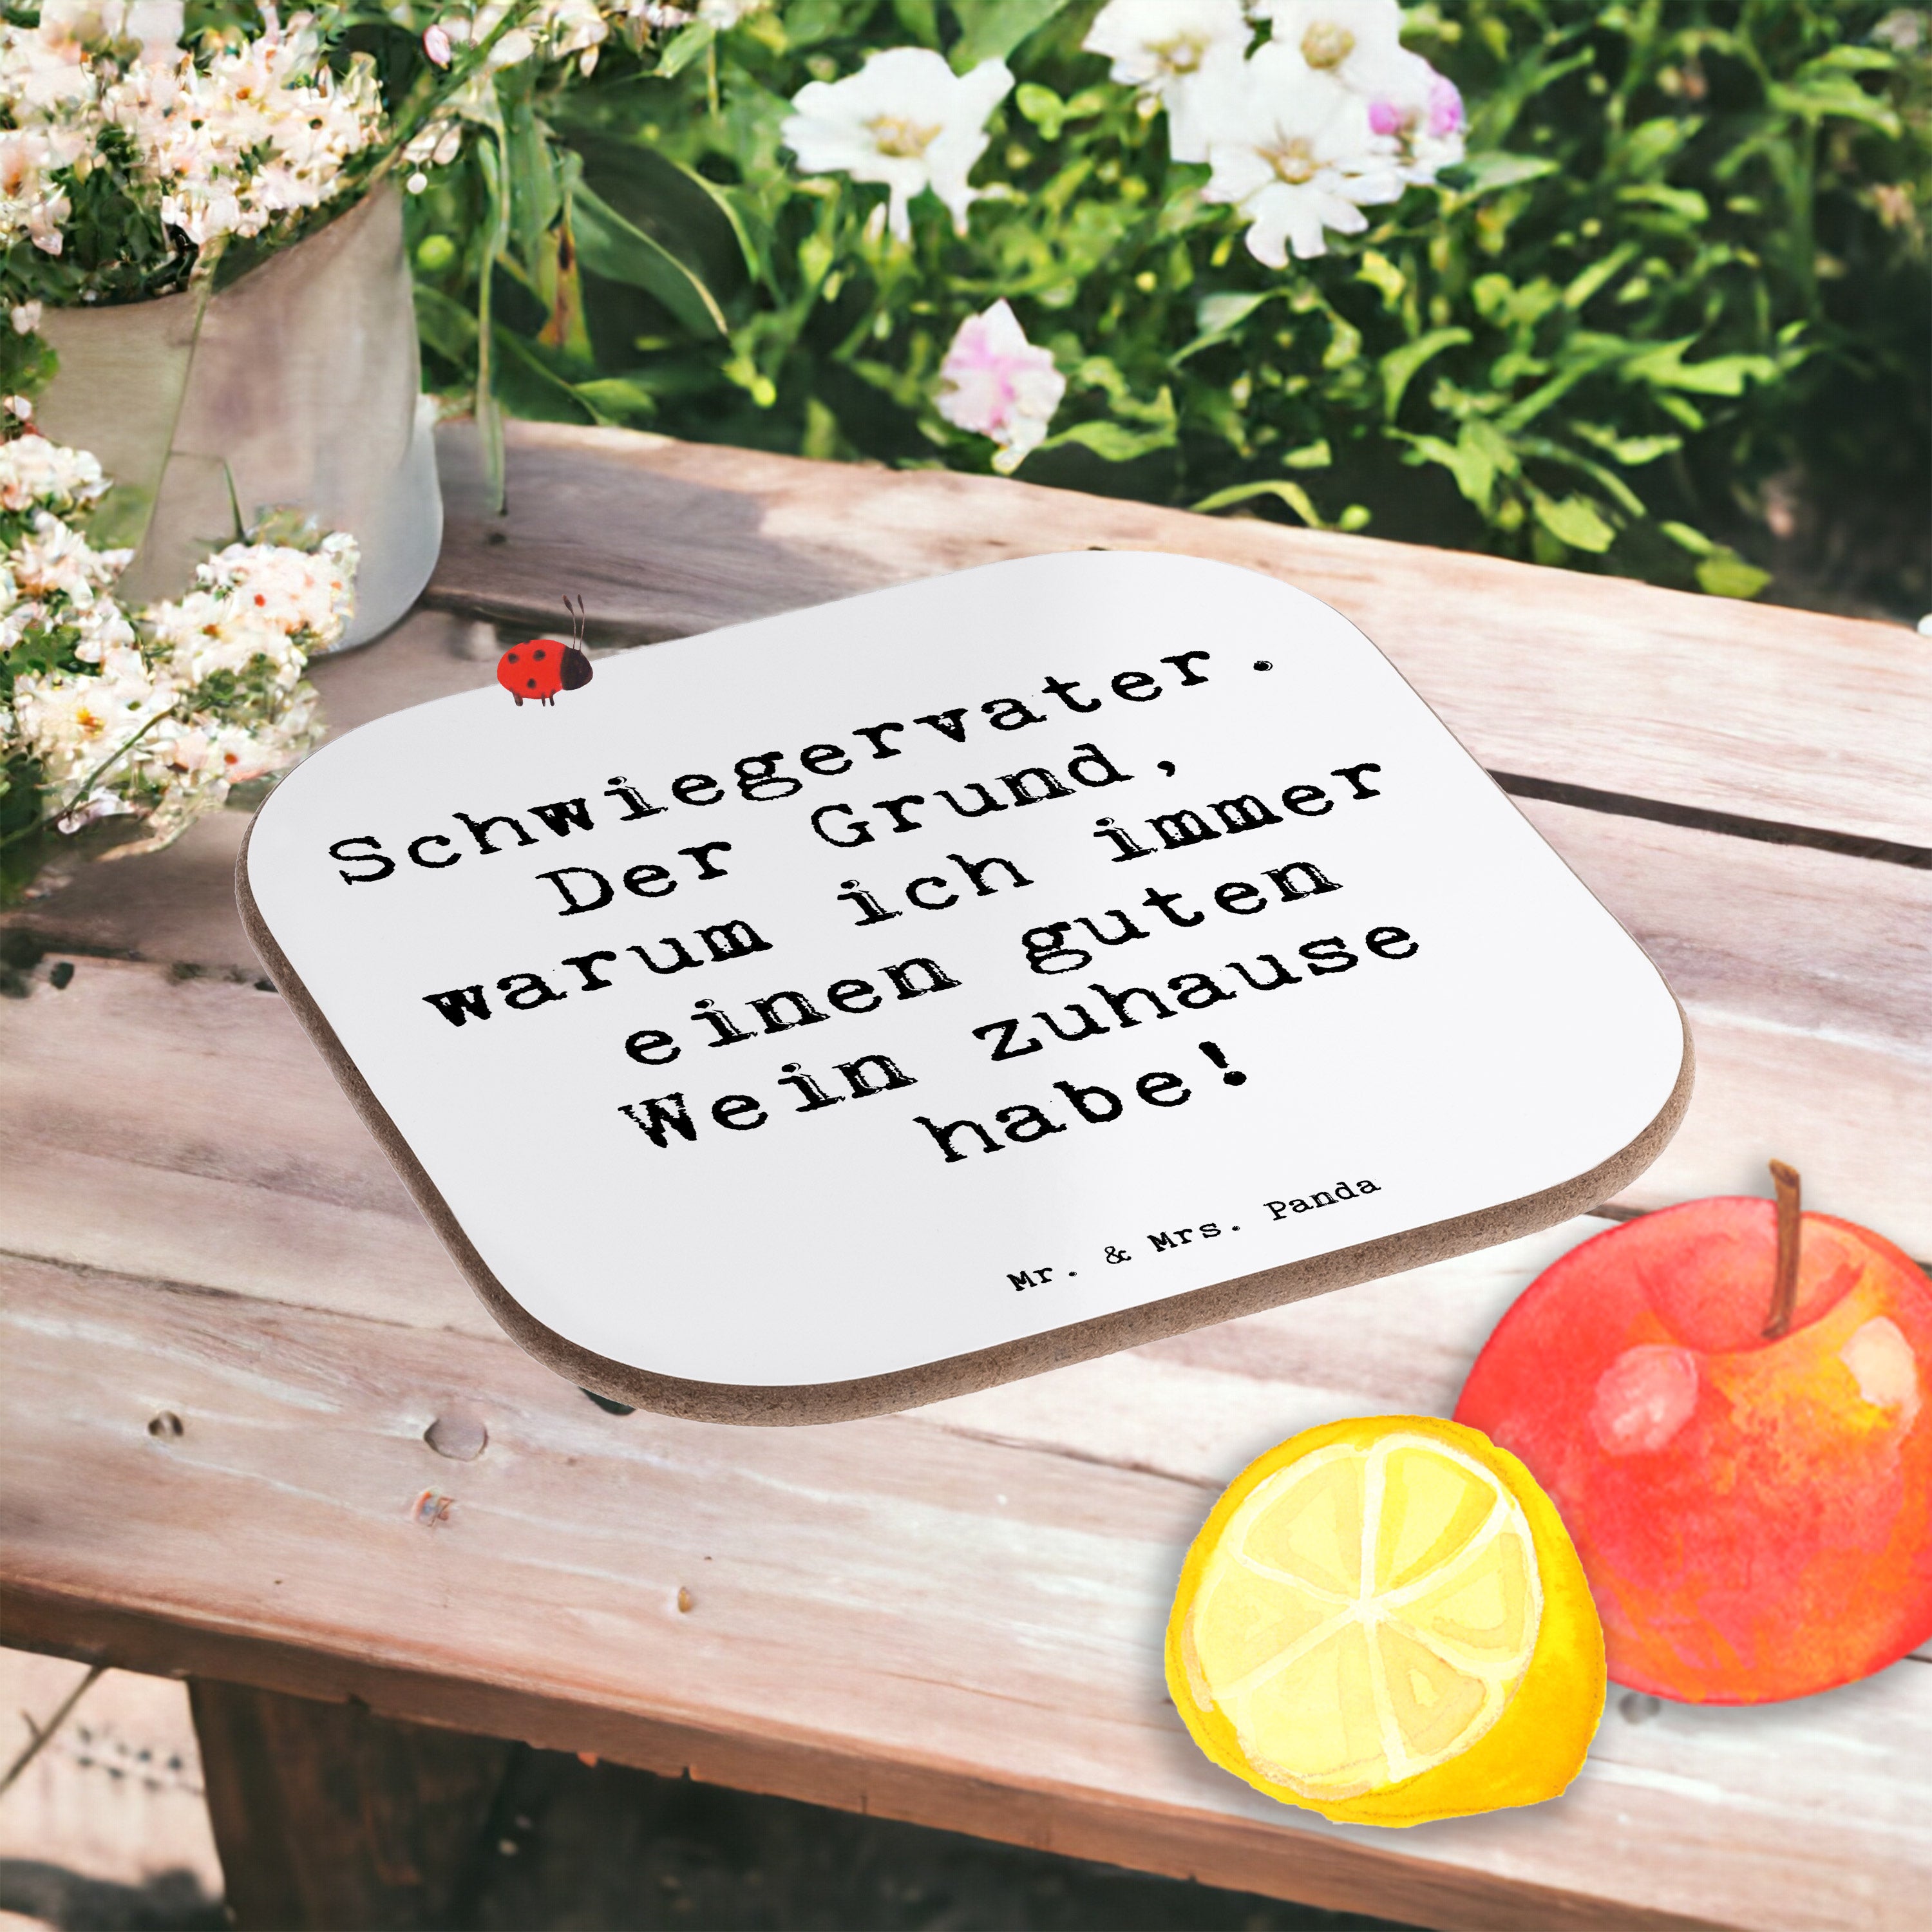 Schwiegervater.
Der Grund,
warum ich immer
einen guten
Wein zuhause
habe!
Mr. & Mrs. Panda